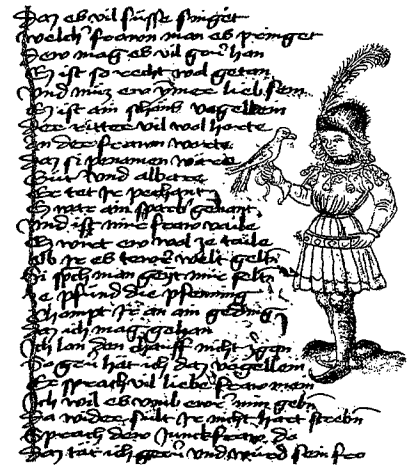 Daz es vil süsse singet
Welch frawn man es pringet
Dew mag es vil gern han
Es ist so recht wol getan
Vnd müz ew ymer lieb sein
Es ist ain schöns vogellein
Der ritter vil wol horte
An der frawn worte
Daz si penamen ware
Gut vnd albere
Er tet ir pechant
Er war ain sparb genant
Vnd ist mir fraw vaile
Er wirt ew wol ze taile
Ob ir es tewr welt geltn
Si sprach man geyt mir seltn
Je pfund die pfenning
Chompt ir an ain geding
Daz ich mag gehan
Ich lan den chauff nicht
So gern hät ich daz vogellein
Er sprach vil liebe fraw man
Ich wil es vmb ewr min gebn
Da wider sült ir nicht hart strebn
Sprach dew Junckfraw do
Daz tät ich gern vnd würd sein fro